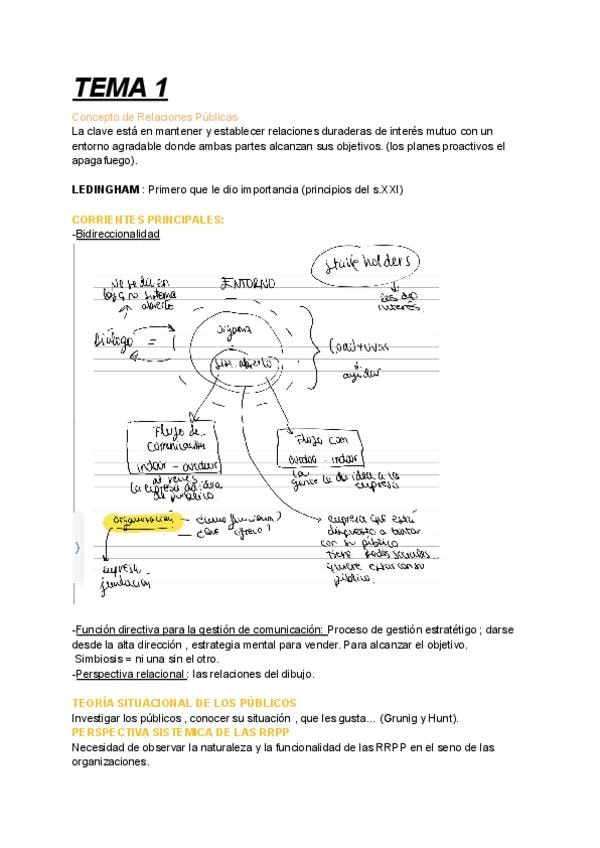 TEMA 1
Concepto de Relaciones Públicas
La clave está en mantener y establecer relaciones duraderas de interés mutuo con un
entorno agradable donde ambas partes alcanzan sus objetivos. (los planes proactivos el
apagafuego).
LEDINGHAM : Primero que le dio importancia (principios del s.XXI)
CORRIENTES PRINCIPALES:
-Bidireccionalidad
Stake holders
ENTORNO
abierto
interés
Diálogo =
abierto
ayudar
Flujo de
comunicación
indoor - outdoor
al revés
la empresa da idea
de público
Flujo com
outdoor - indoor
la
gente le da idea a la
empresa
organización
- cómo funciona?
- qué ofrece?
empresa que está
dispuesto a tratar
con su público
tiene redes sociales
quiere estar con su
público.
empresa
fundación
-Función directiva para la gestión de comunicación: Proceso de gestión estratétigo ; darse
desde la alta dirección , estrategia mental para vender. Para alcanzar el objetivo.
Simbiosis = ni una sin el otro.
-Perspectiva relacional : las relaciones del dibujo.
TEORÍA SITUACIONAL DE LOS PÚBLICOS
Investigar los públicos , conocer su situación , que les gusta... (Grunig y Hunt).
PERSPECTIVA SISTEMICA DE LAS RRPP
Necesidad de observar la naturaleza y la funcionalidad de las RRPP en el seno de las
organizaciones.